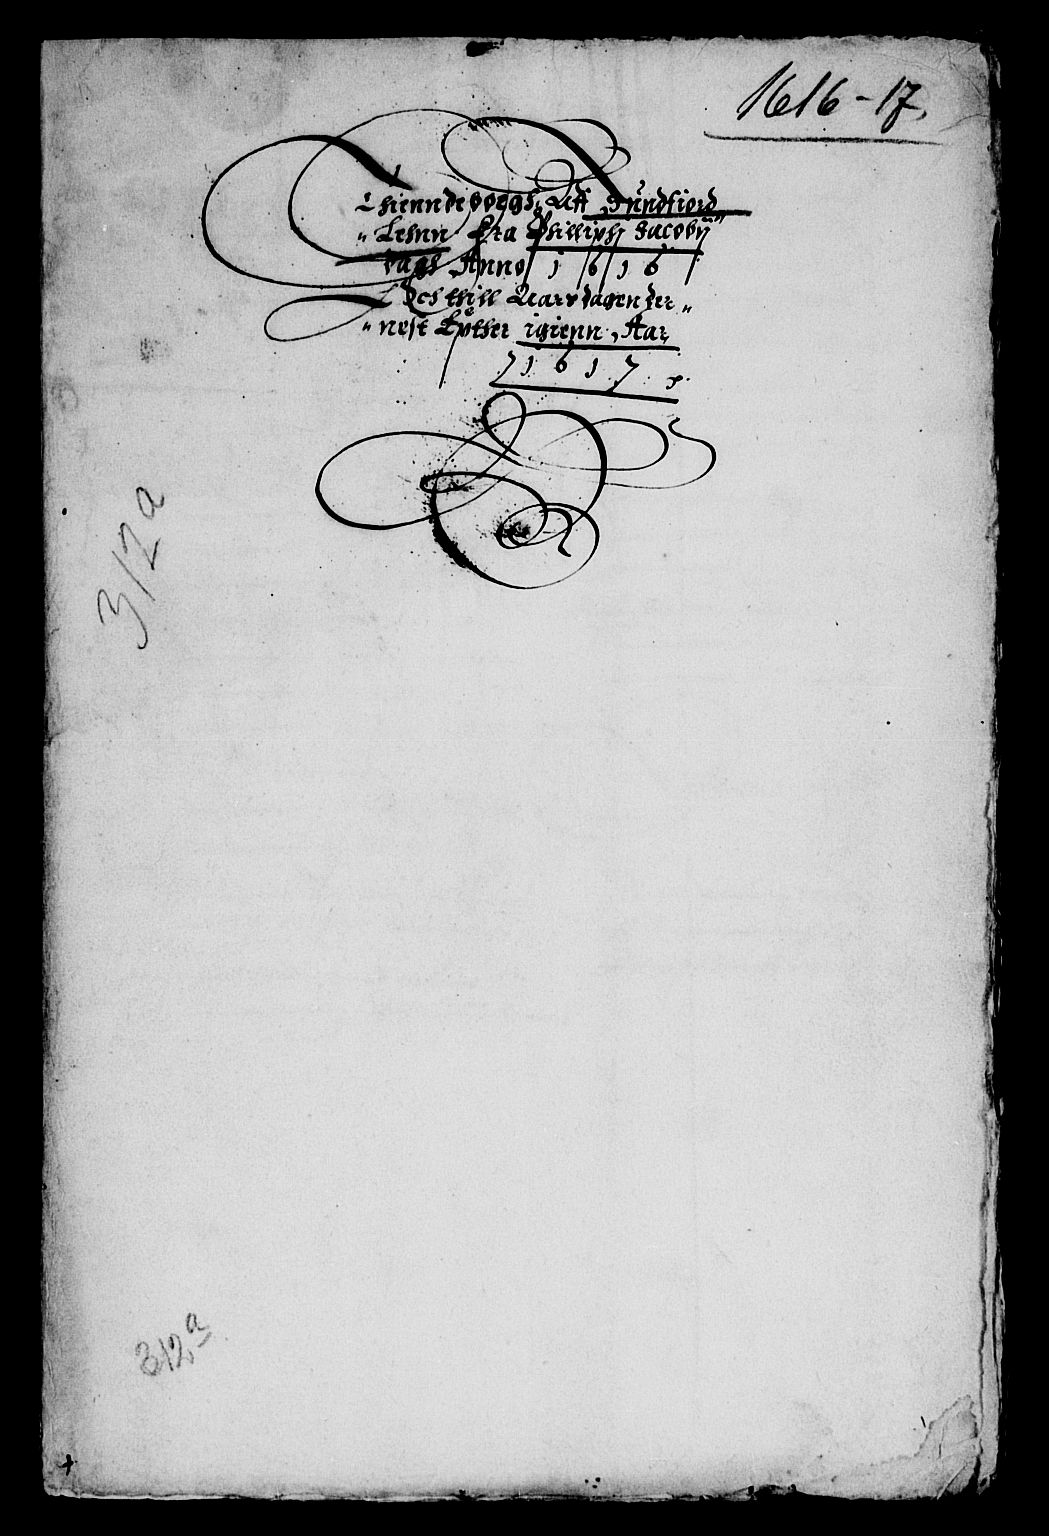 1616-17.
Thienndebogh, Aff Sundfiord
"Lehnn Fra Philliphj Jacobij"
dagh Anno 1616
Och thill Aars dagen der"
"nest Epther igienn, Aar
1617
312a
312a